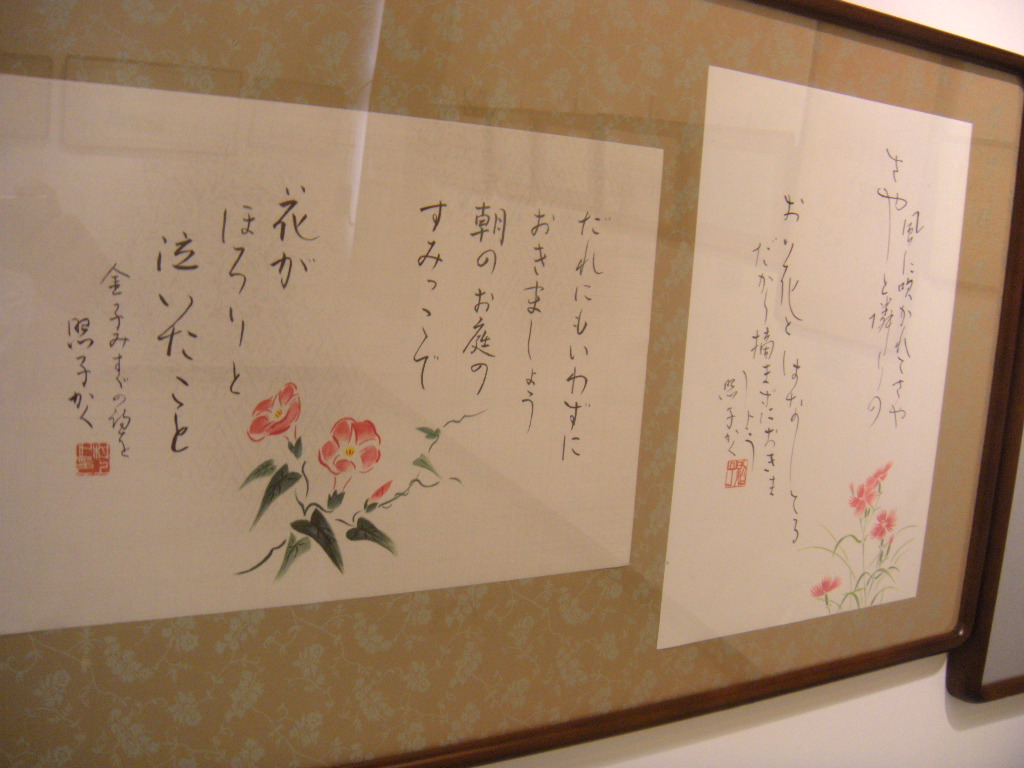 風に吹かれてさや
さやと隣りの
お花とはなしてる
だから摘まずにおきま
しょう
照子かく
だれにもいわずに
おきましょう
朝のお庭の
すみっこで
花が
ほろりと
泣いたこと
金子みすゞの詩を
照子かく